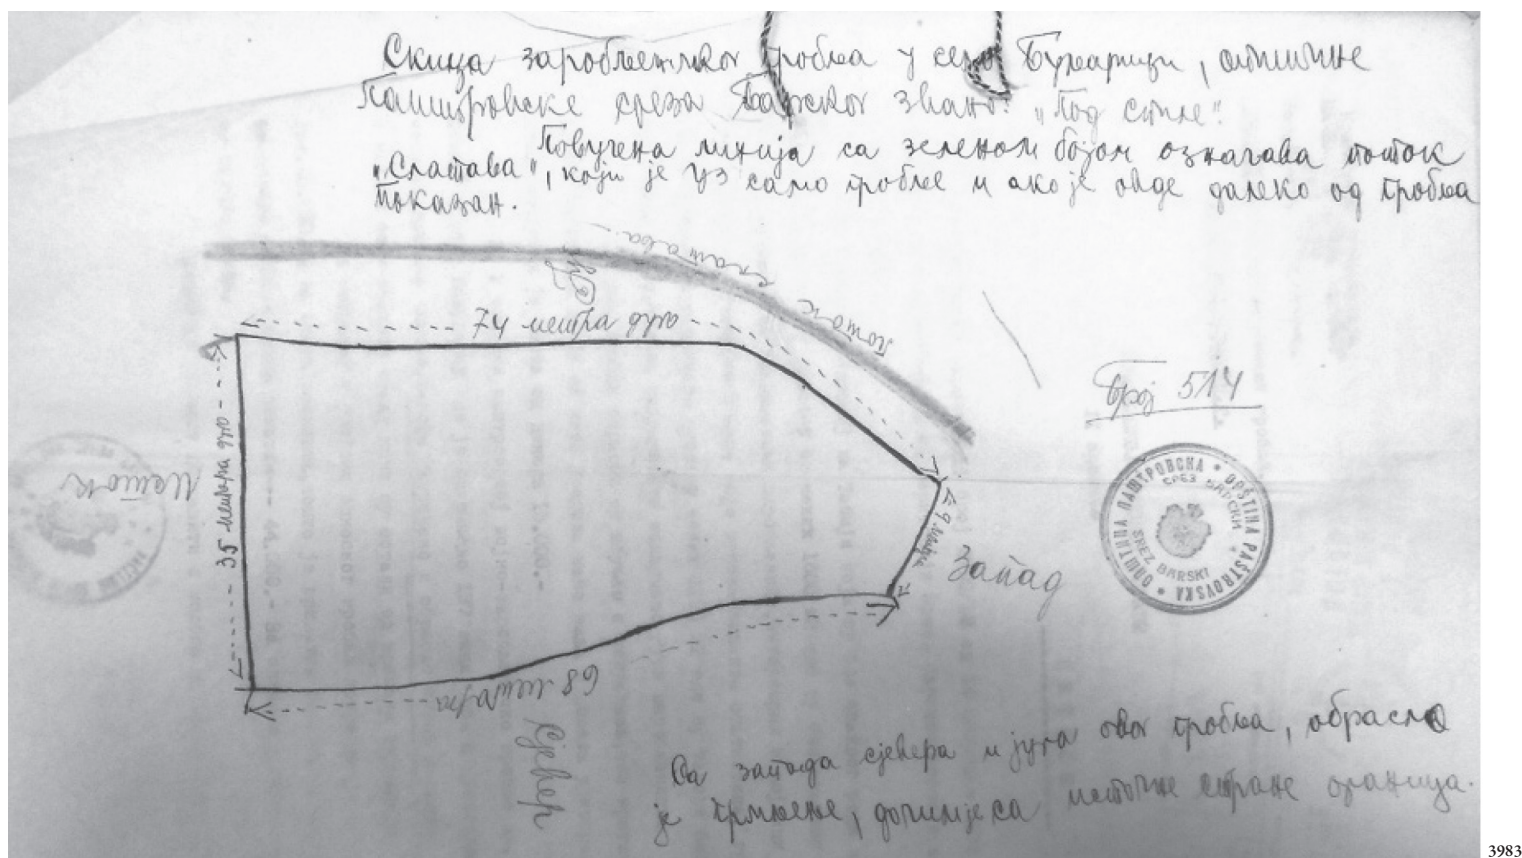 Скица заробљеничког гробља у селу Буљарици, општине
Паштровске среза Барског звано: „Под стине".
Повучена линија са зеленом бојом означава поток
„Слатава", који је уз само гробље и ако је овде далеко од гробља
показан.
поток слатава.
Југ
74 метра дуго
35 метара дуго
Исток
9 метра
Запад
68 метара
Сјевер
Број 514
ОПШТИНА ПАШТРОВСКА • OPŠTINA PAŠTROVSKA •
СРЕЗ БАРСКИ
SREZ BARSKI
Са запада сјевера и југа овог гробља, обрасло
је грмљење, дочим је са источне стране ораница.
3983